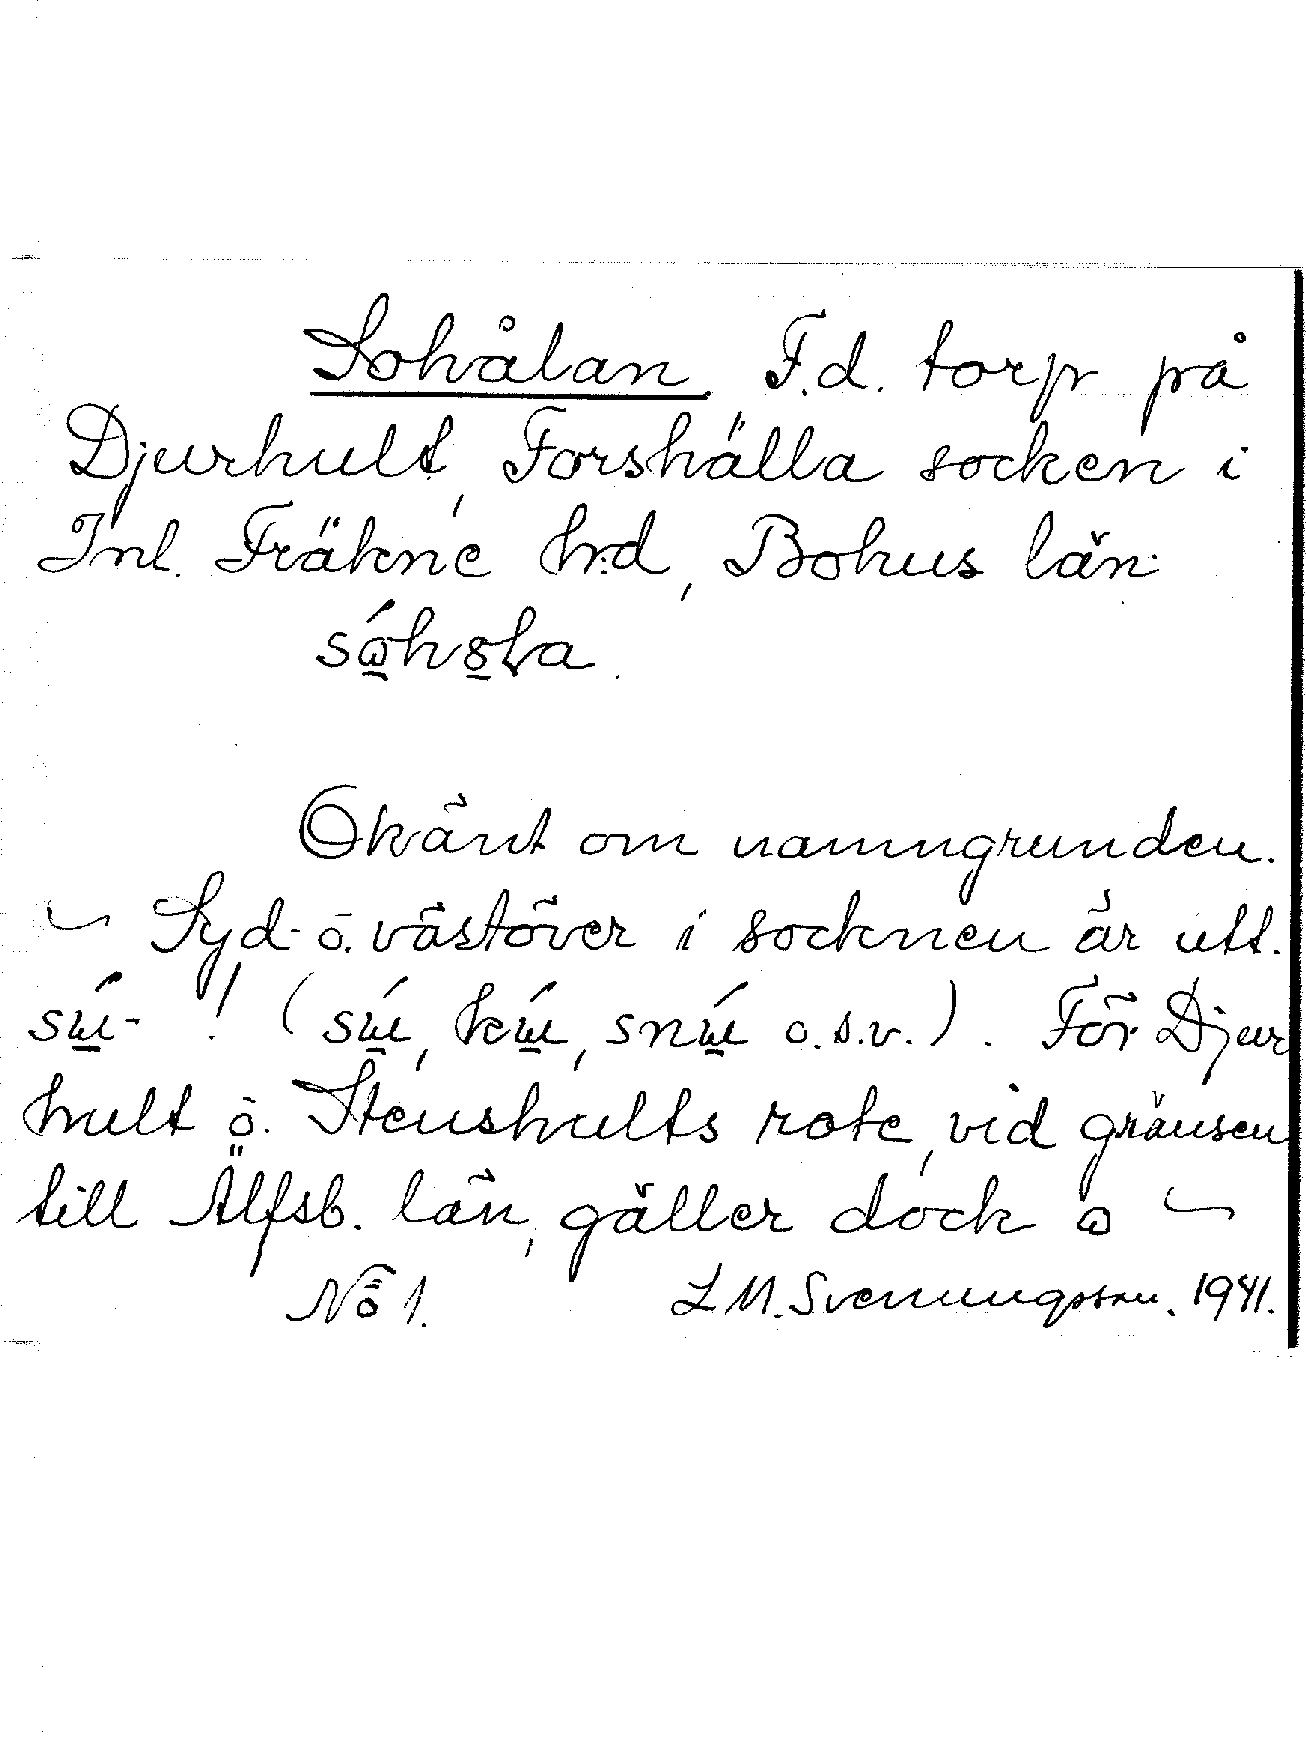 Sohålan. F.d. torp på
Djurhult, Forshälla socken i
Inl. Fräkne hrd, Bohus län.

Okänt om namngrunden.
~ Syd- o. västöver i socknen är utt.
sɯ́- ! (sɯ́, kɯ́, snɯ́ o.s.v.). För Djur
hult o. Stenshults rote, vid gränsen
till Älfsb. län, gäller dock ~
No 1. L M. Svenungsson. 1941.